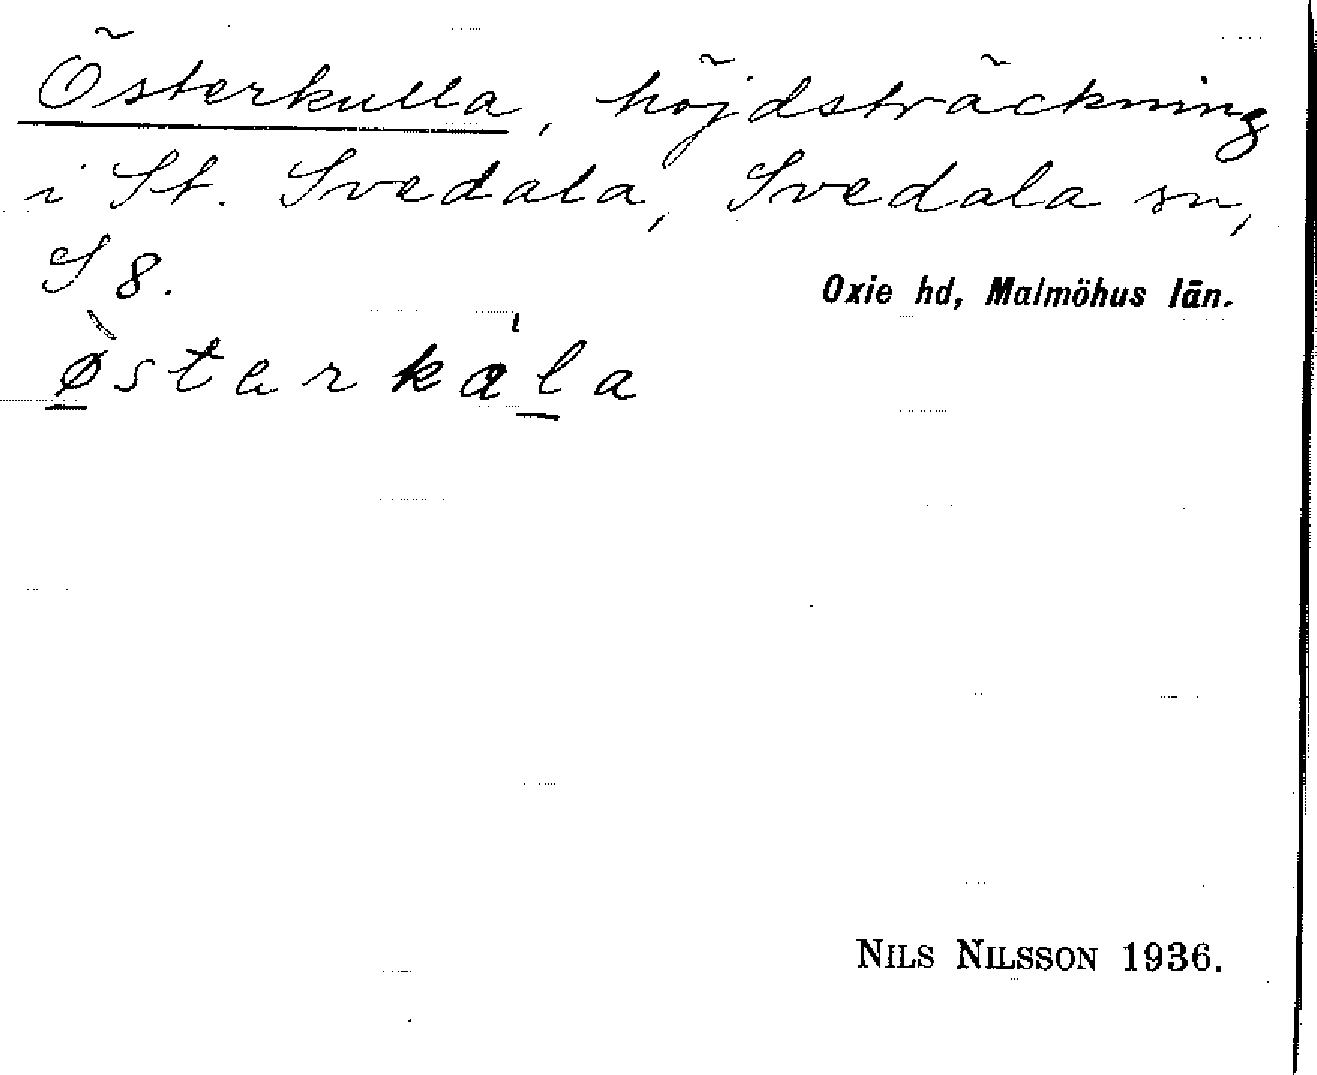 Österkulla, höjdsträckning
i St. Svedala, Svedala sn,
S 8.
Oxie hd, Malmöhus län.
ø̀starkàla
NILS NILSSON 1936.